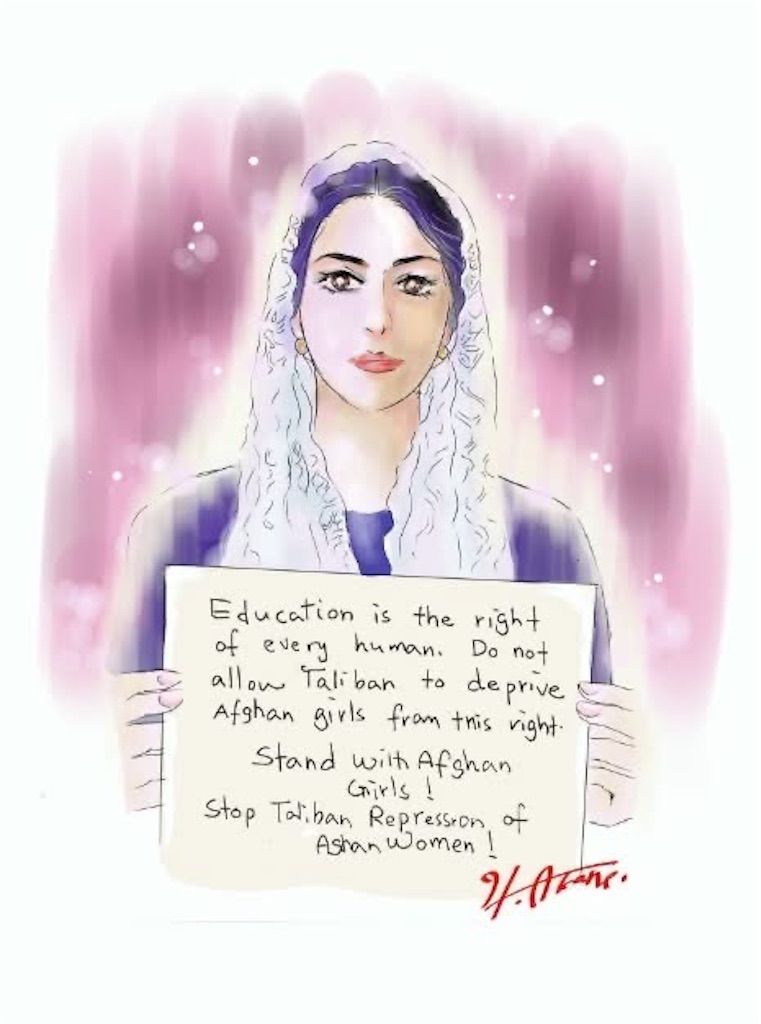 Education is the right
of every human. Do not
allow Taliban to deprive
Afghan girls from this right.
Stand with Afghan
Girls !
Stop Taliban Repression of
Afghan Women !
H.